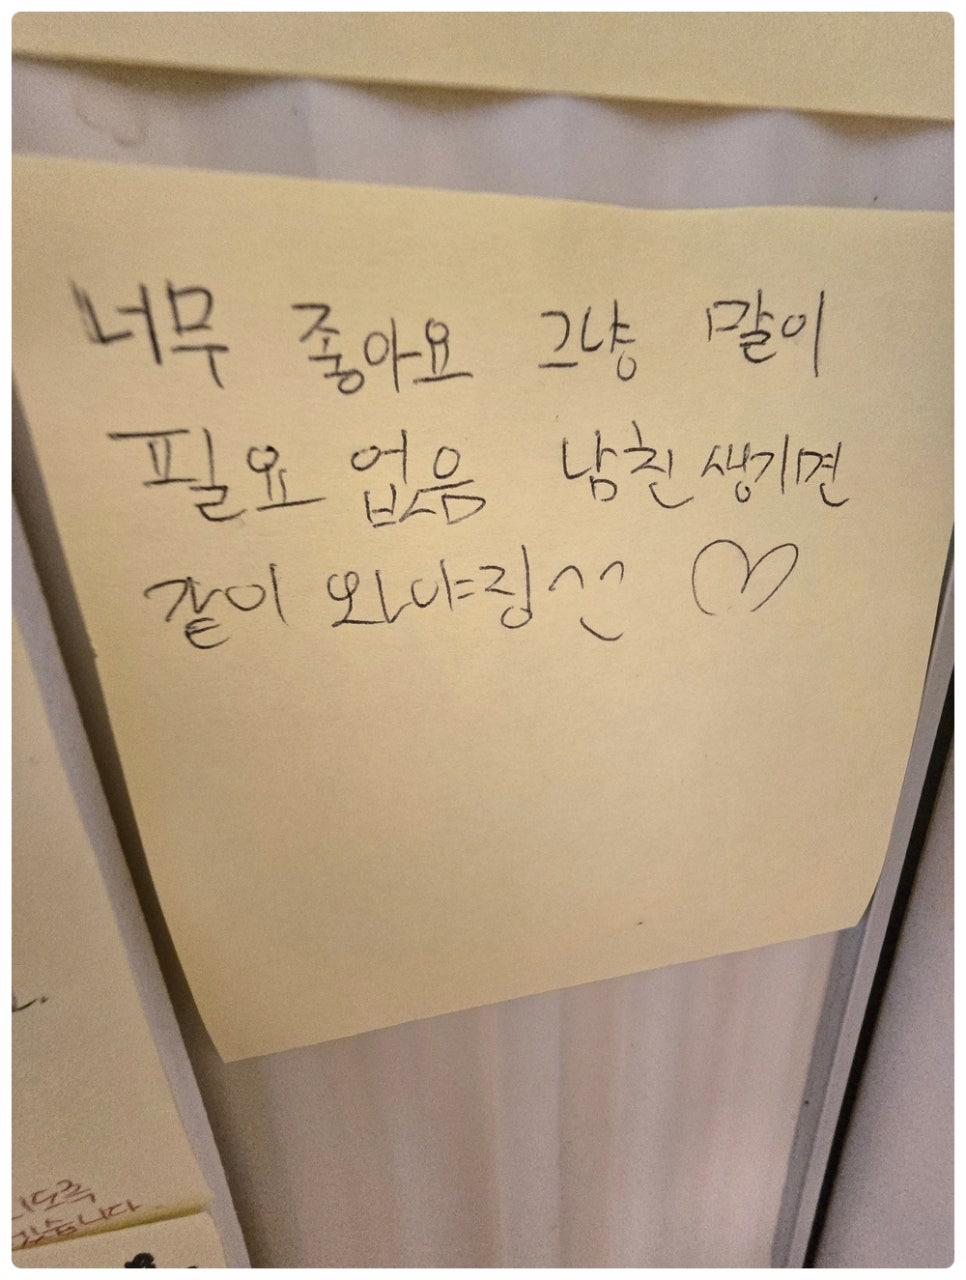 너무 좋아요 그냥 말이
필요 없음 남친 생기면
같이 와야징^^ ♡
습니다